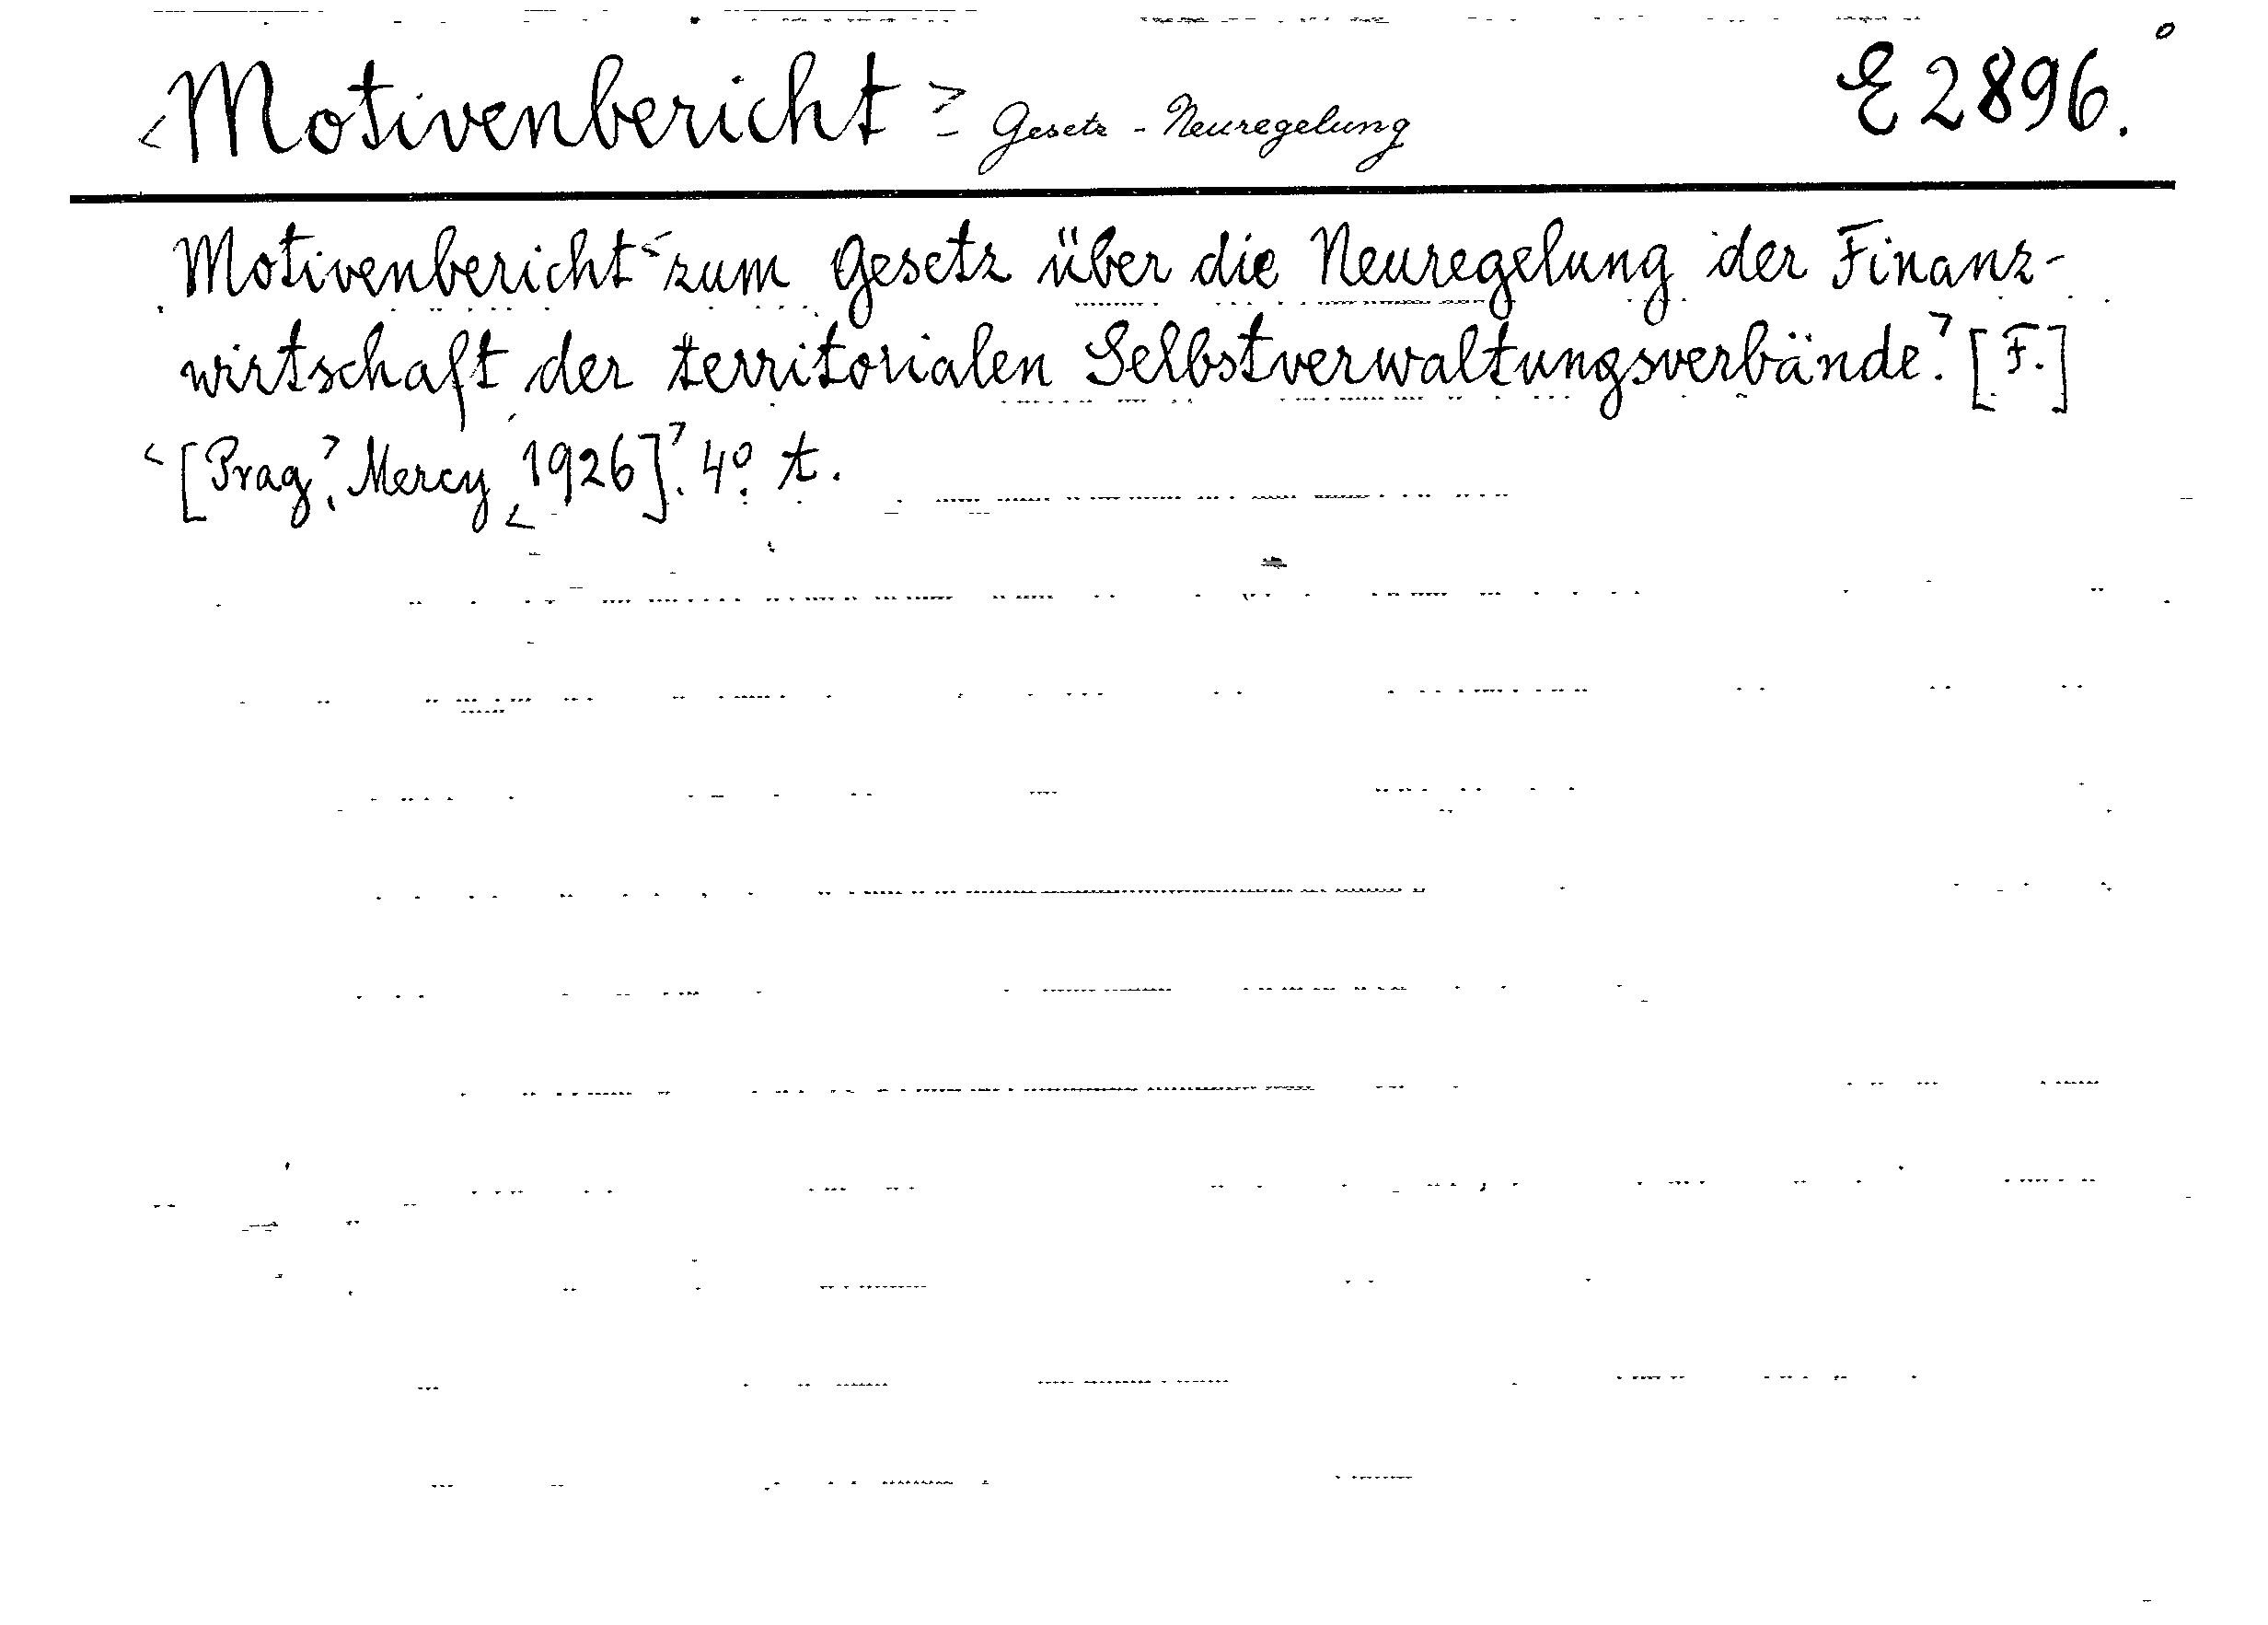 <Motivenbericht> - Gesetz - Neuregelung E 2896.
Motivenbericht <zum Gesetz über die Neuregelung der Finanz-
wirtschaft der territorialen Selbstverwaltungsverbände>. [F.]
<[Prag>, Mercy <1926]>. 4º. t.